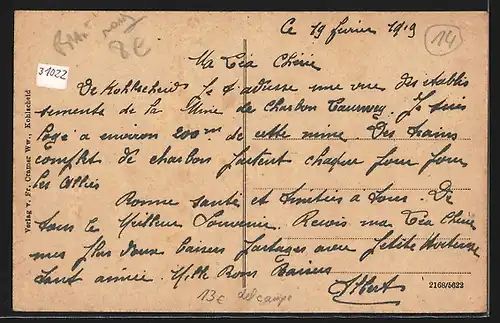 Ce 19 février 1919
14
8€
31022
Ma Téa Chérie
De Kohlscheid je t'adresse une vue des établis
sements de la Mine de Charbon Laurweg. Je suis
logé a environ 200 ms de cette mine. Des trains
complet de charbon partent chaque jour pour
les Alliés
Bonne santé et amitiés a tous. De
tous le Meilleur Souvenir. Reçois ma Téa Chérie
mes plus doux baisers partages avec petite
tant aimée. Mille Bons Baisers
Albert
13€ delcampe
2168/5622
Verlag v. Fr. Cramer Ww., Kohlscheid